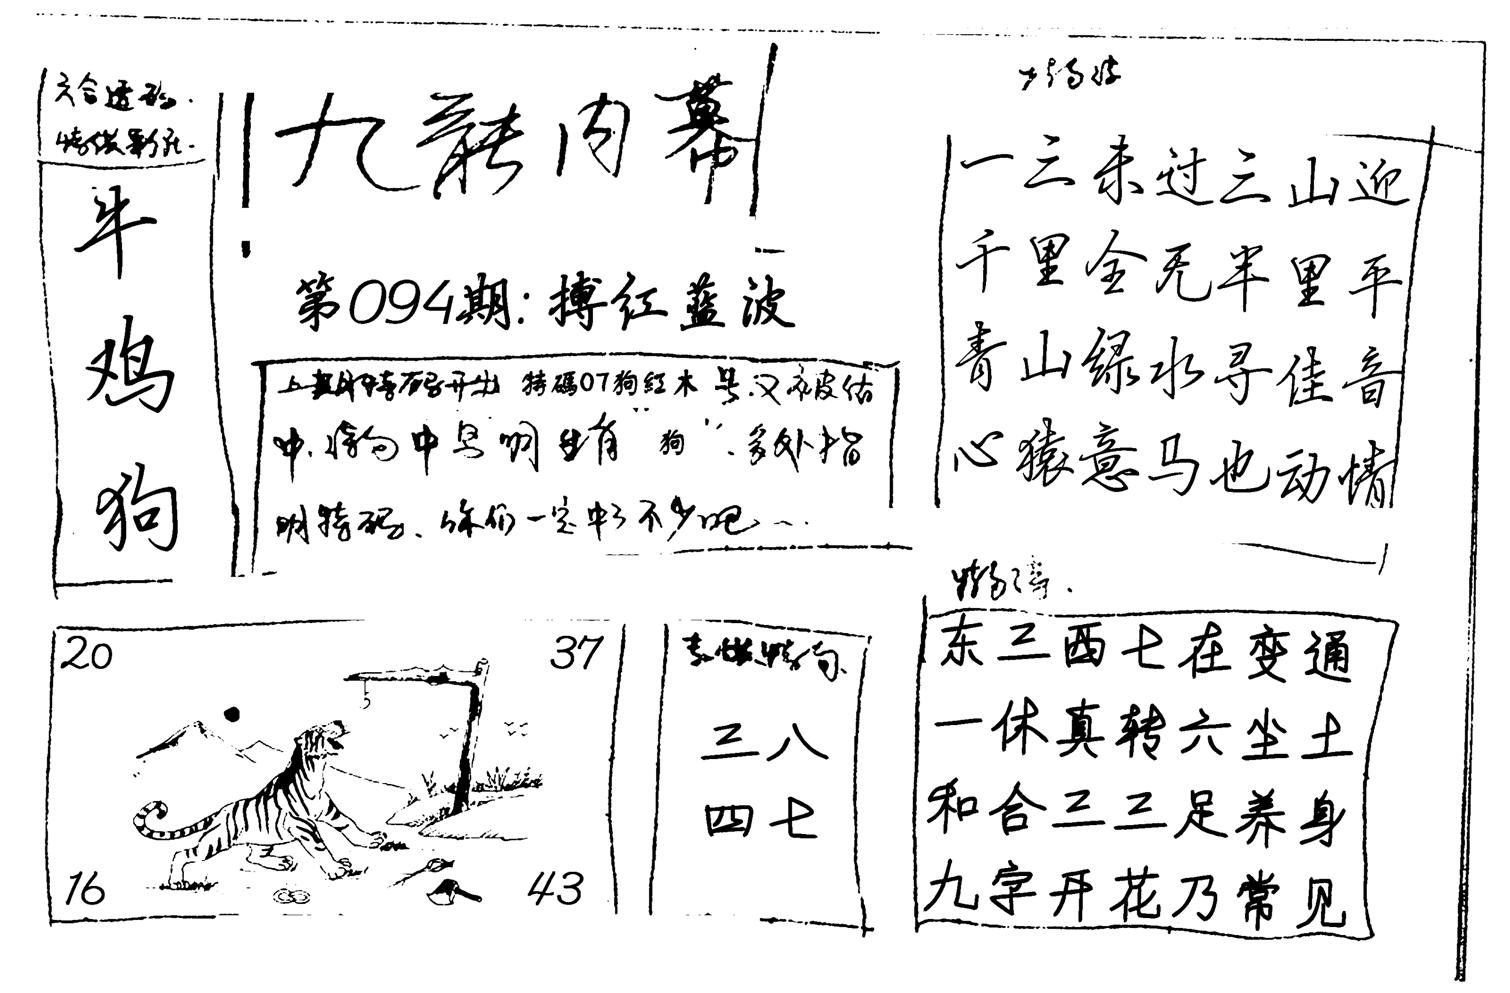 六合透码.
牛
鸡
狗
九龍内幕
第094期:搏红蓝波
上期特码开出 特碼07狗红木 号.又被估
中.特肖中号明生肖"狗".多处指
明特码、你们一定中了不少吧...
一三未过三山迎
千里全无半里平
青山绿水寻佳音
心猿意马也动情
20
37
16
43
三八
四七
东三西七在变通
一休真转六坐土
和合三三足养身
九字开花乃常见